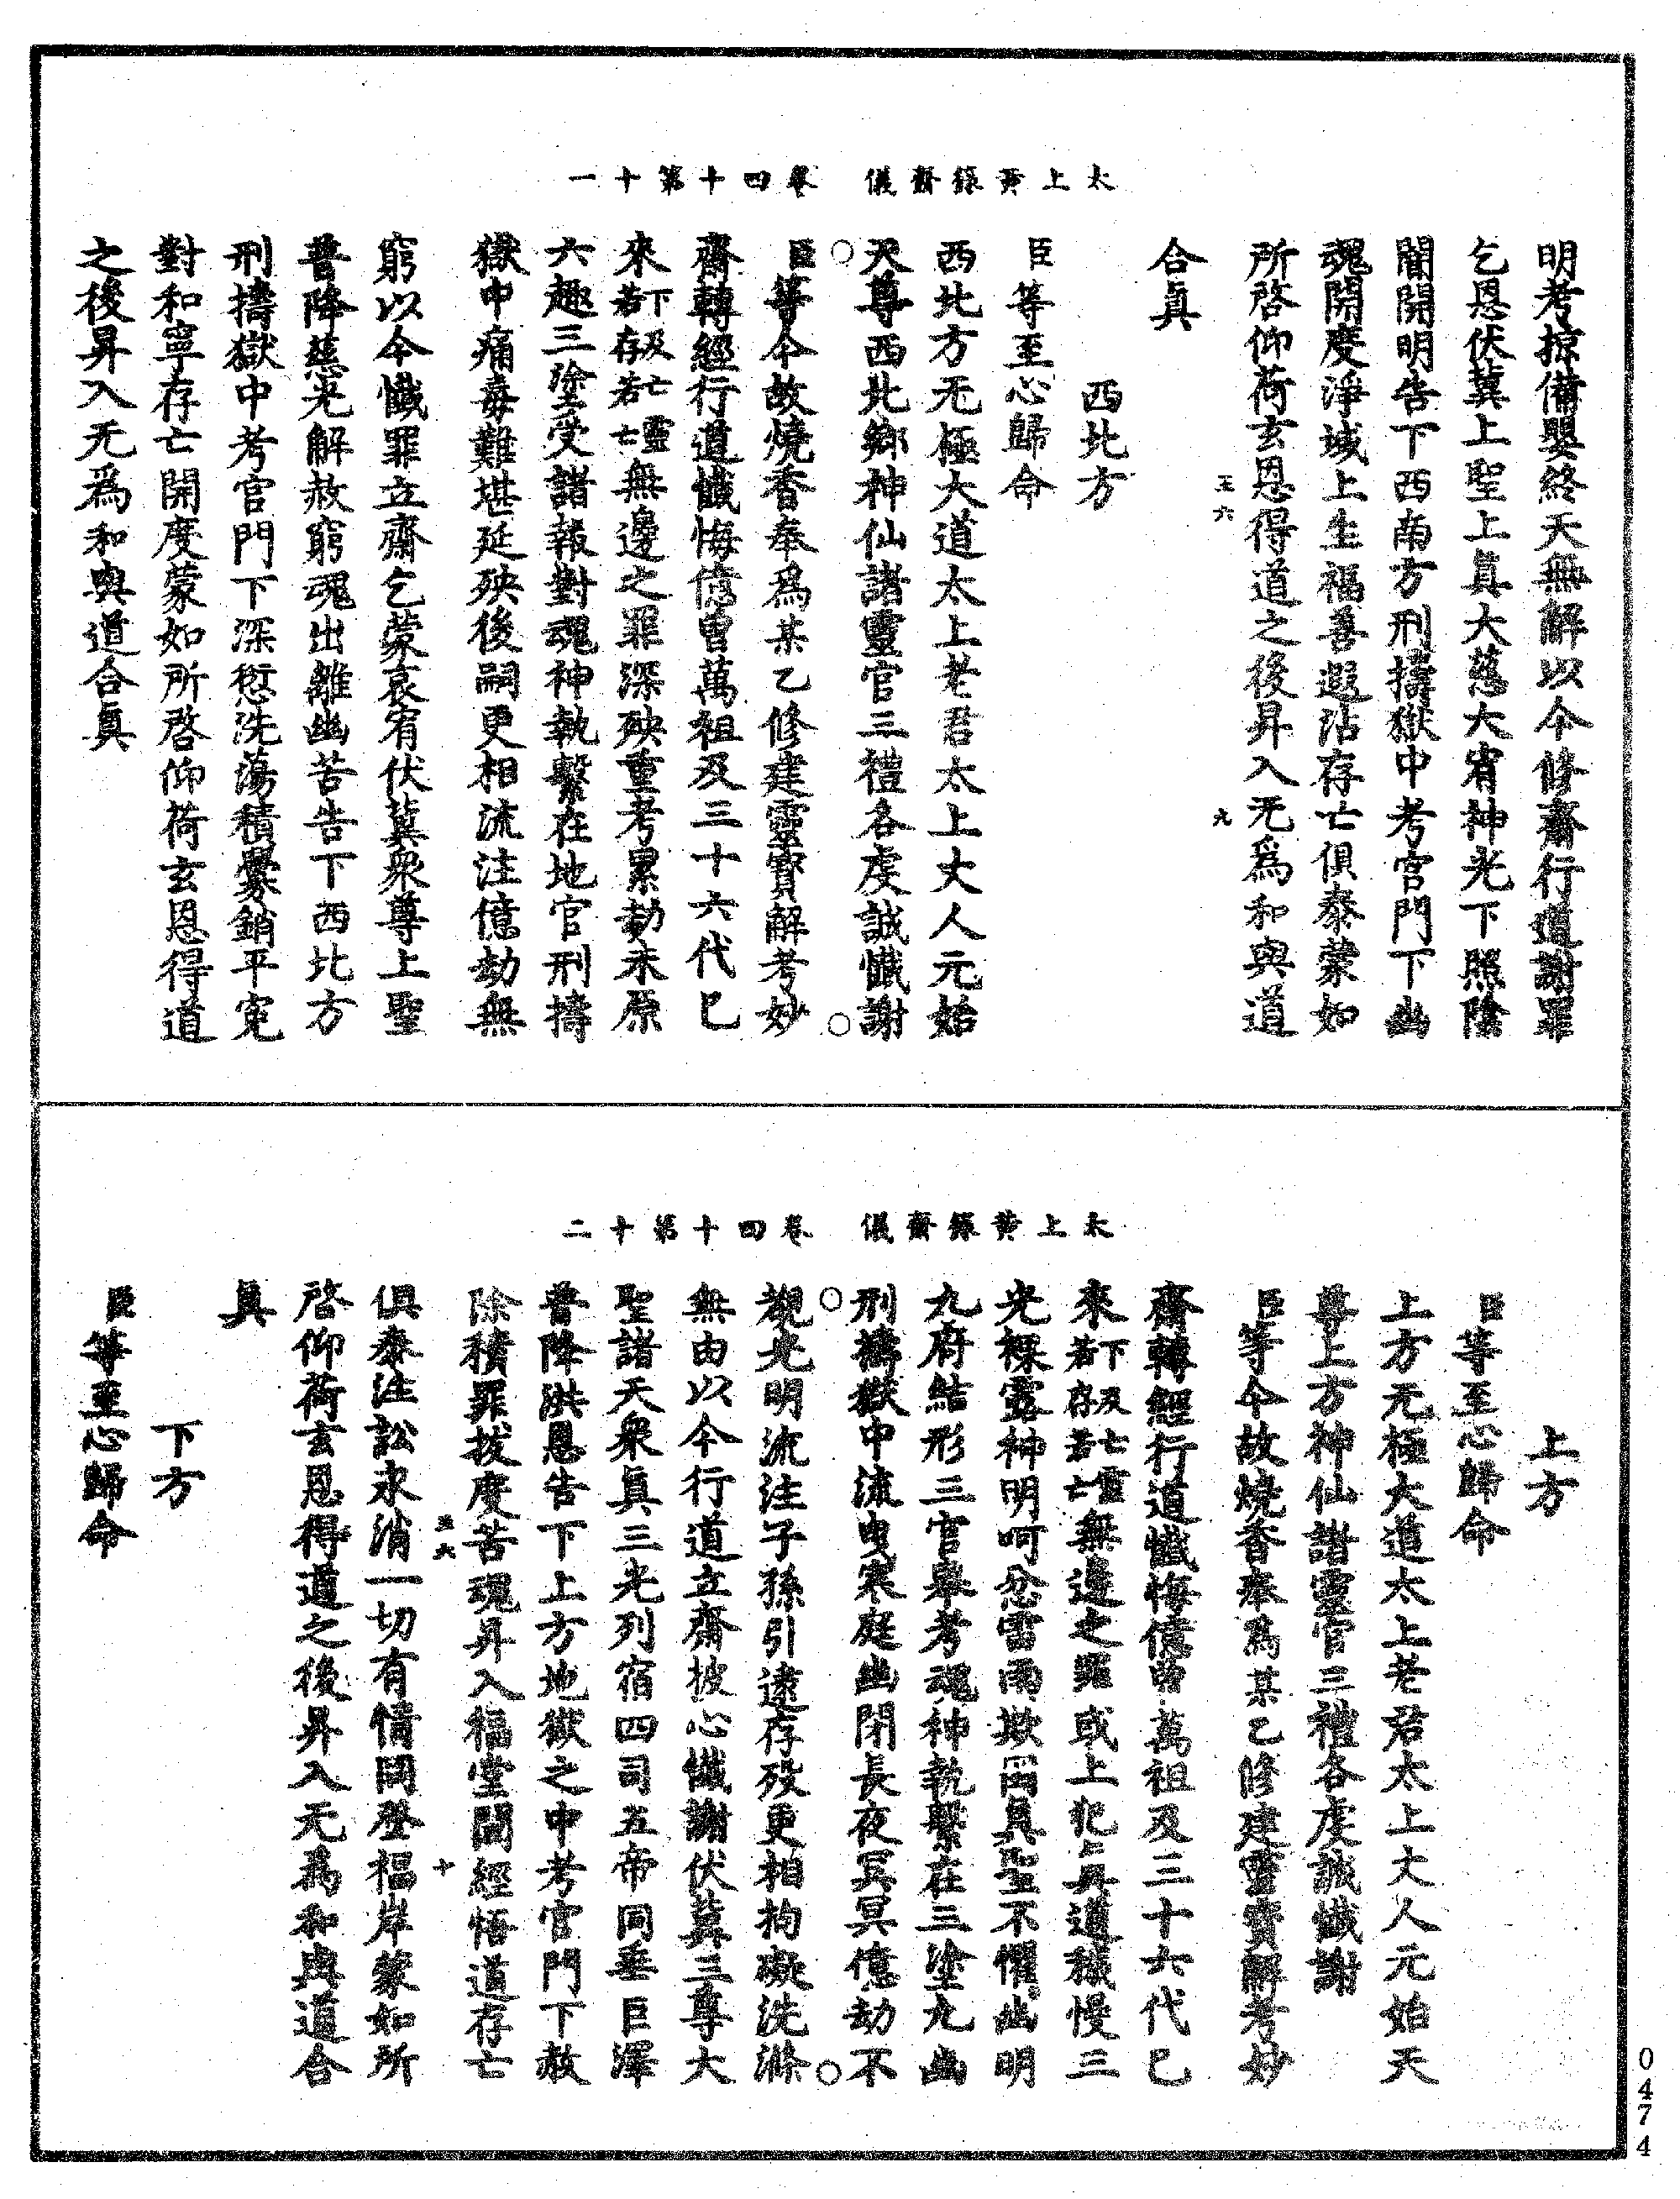 太上黃籙齋儀　卷四十第十一
明考掠備嬰終天無解以今修齋行道謝罪
乞恩伏冀上聖上眞大慈大宥神光下照陰
闇開明告下西南方刑擣獄中考官門下幽
魂開度淨域上生福善遐沾存亡俱泰蒙如
所啓仰荷玄恩得道之後昇入无爲和與道
王六　九
合眞
西北方
臣等至心歸命
西北方无極大道太上老君太上丈人元始
天尊西北鄉神仙諸靈官三禮各虔誠懺謝
臣等今故燒香奉爲某乙修建靈寶解考妙
齋轉經行道懺悔億曾萬祖及三十六代已
來下及亡靈若存若亡無邊之罪深殃重考累劫未原
六趣三塗受諸報對魂神執繫在地官刑擣
獄中痛毒難堪延殃後嗣更相流注億劫無
窮以今懺罪立齋乞蒙哀宥伏冀衆尊上聖
普降慈光解赦窮魂出離幽苦告下西北方
刑擣獄中考官門下深愆洗蕩積釁銷平寃
對和寧存亡開度蒙如所啓仰荷玄恩得道
之後昇入无爲和與道合眞
太上黃籙齋儀　卷四十第十二
上方
臣等至心歸命
上方无極大道太上老君太上丈人元始天
尊上方神仙諸靈官三禮各虔誠懺謝
臣等今故燒香奉爲某乙修建靈寶解考妙
齋轉經行道懺悔億曾萬祖及三十六代已
來下及亡靈若存若亡無邊之罪或上犯上眞道穢慢三
光裸露神明呵忿雷雨欺罔眞聖不懼幽明
九府結形三官舉考魂神執繫在三塗九幽
刑擣獄中流曳寒庭幽閉長夜冥冥億劫不
覩光明流注子孫引逮存歿更相拘礙洗滌
無由以今行道立齋披心懺謝伏冀三尊大
聖諸天衆眞三光列宿四司五帝同垂巨澤
普降洪恩告下上方地獄之中考官門下赦
除積罪拔度苦魂昇入福堂聞經悟道存亡
王六　十
俱泰注訟永消一切有情同登福岸蒙如所
啓仰荷玄恩得道之後昇入无爲和與道合
眞
下方
臣等至心歸命
0474